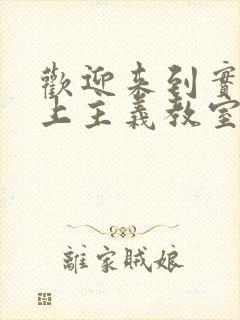 歡迎来到實
上主義教室
離家賊娘